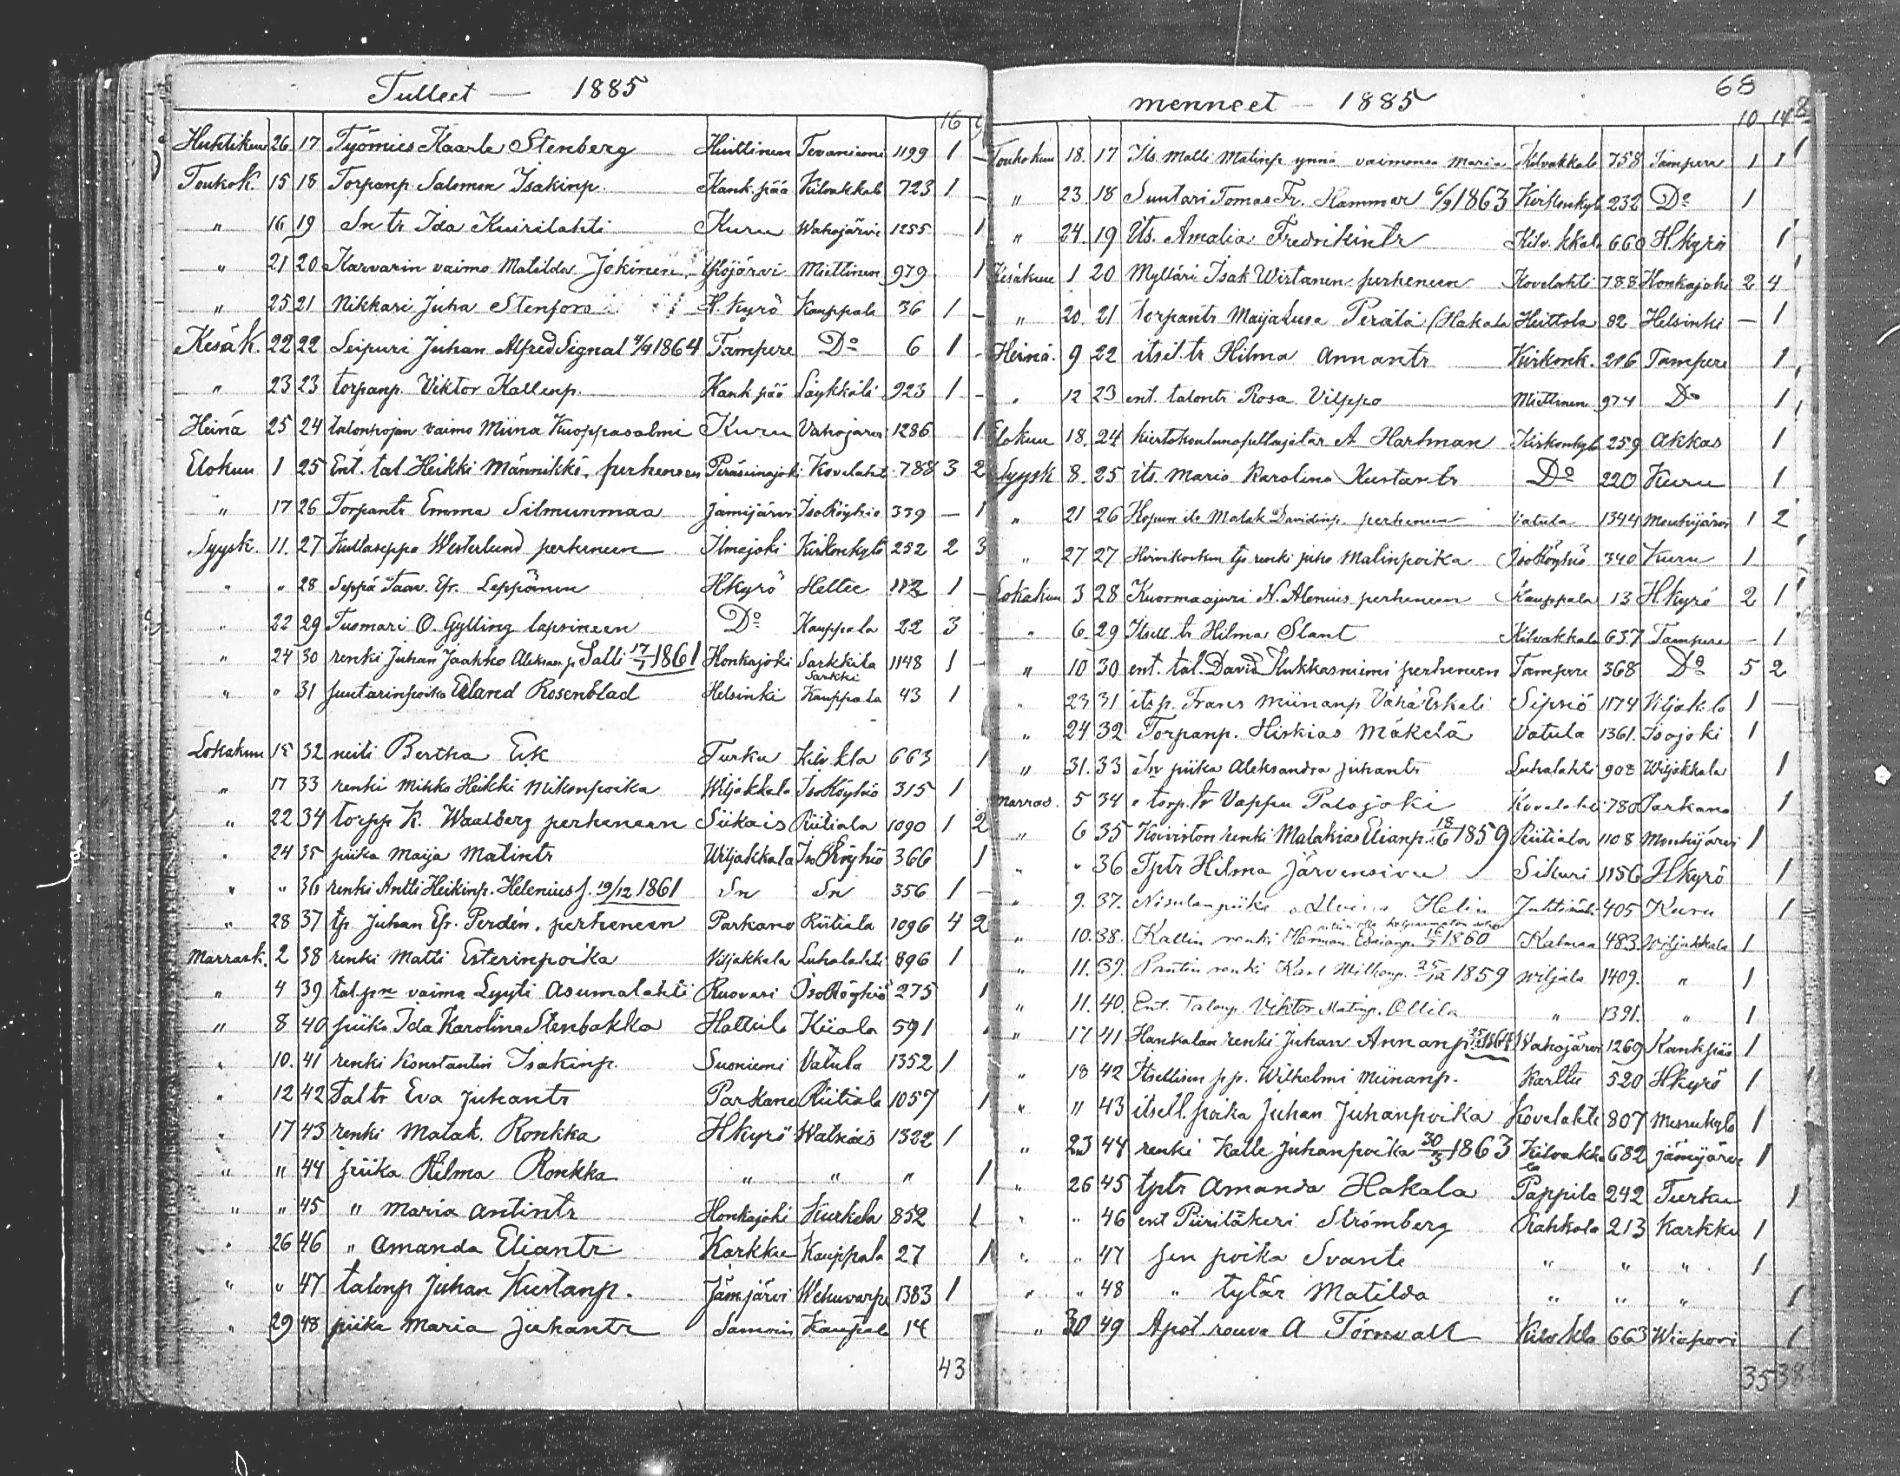 Tulleet — 1885
16
Huhtikuu 26 17 Työmies Kaarle Stenberg Huittinen Tevaniemi 1199 1 –
Toukok. 15 18 Torpanp. Salomon Isakinp. Kank.pää Kilvakkala 723 1 –
" 16 19 Sn tr Ida Kuirilahti Kuru Wahojärvi 1255 1
" 21 20 Karvarin vaimo Matilda Jokinen Ylöjärvi Miettinen 979 1
" 25 21 Nikkari Juha Stenfors H.kyrö Kauppala 36 1 –
Kesäk. 22 22 Leipuri Juhan Alfred Signal 1864 Tampere Do 6 1 –
" 23 23 torpanp. Viktor Kallenp. Kank.pää Säykkälä 923 1 –
Heinä 25 24 talonpojan vaimo Miina Kuoppasalmi Kuru Vahojärvi 1286 1
Elokuu 1 25 Ent. tal. Heikki Männikkö, perheneen Peräseinajoki Kovelahti 788 3 2
" 17 26 Torpantr Emma Silmunmaa Jämijärvi IsoRöyhiö 339 – 1
Syysk. 11. 27 Kultaseppa Westerlund perheneen Ilmajoki Kirkonkylä 252 2 3
" " 28 Seppä Taav. Ef. Leppänen Hkyrö Heltee 1 –
" 22 29 Tuomari O. Gylling lapsineen Do Kauppala 22 3
" 24 30 renki Juhan Jaakko Aleksan.p. Salli 17/7 1861 Honkajoki Sarkkila 1148 1 –
Sarkki
" " 31 suutarinpoika Erland Rosenblad Helsinki Kauppala 43 1
Lokakuu 15 32 neiti Bertha Ek Turku Kilv.kla 663 1
" 17 33 renki Mikko Heikki Mikonpoika Wiljakkala IsoRöyhiö 315 1
" 22 34 torpp K. Waalberg perheneen Siikais Riitiala 1090 1 2
" 24 35 piika Maija Matintr Wiljakkala IsoRöyhiö 366 1
" " 36 renki Antti Heikinp. Helenius s. 19/12 1861 Sn Sn 356 1 –
" 28 37 tp. Juhan Ef. Perdén, perheneen Parkano Riitiala 1096 4 2
Marrask. 2 38 renki Matti Esterinpoika Viljakkala Luhalahti 896 1
" 4 39 tal.pn vaimo Lyyti Asumalahti Ruovesi IsoRöyhiö 275 1
" 8 40 piika Ida Karolina Stenbakka Hattula Kiiala 591 1
" 10. 41 renki Konstantin Isakinp. Suoniemi Vatula 1352 1
" 12 42 Tal tr Eva Juhantr Parkano Riitiala 1057 1
" 17 43 renki Malak. Ronkka Hkyrö Watsiais 1322 1
" " 44 piika Hilma Ronkka " " " 1
" " 45 " Maria Antintr Honkajoki Kurkela 852 1
" 26 46 " Amanda Eliantr Karkku Kauppala 27 1
" " 47 talonp Juhan Kustanp. Jämijärvi Wehuvarpe 1383 1
" 29 48 piika Maria Juhantr Kaupala 14
43
68
menneet — 1885
10 14
Toukokuu 18. 17 Its. Matti Matinp ynnä vaimonsa Maria Kilvakkala 758 Tampere 1 1
" 23. 18 Suutari Tomas Fr. Hammar 6/9 1863 Kirkonkylä 232 Do 1
" 24. 19 Its. Amalia Fredrikintr Kilv.kkala 660 Hkyrö 1
Kesäkuu 1 20 Mylläri Isak Wirtanen perheneen Kovelahti 788 Honkajoki 2 4
" 20. 21 torpantr Maija Luisa Perälä (Hakala Heittola 82 Helsinki – 1
Heinä. 9 22 itsel. tr Hilma Annantr Kirkonk. 216 Tampere 1
" 12 23 ent. talontr Rosa Vilppo Miettinen 974 Do 1
Elokuu 18. 24 kiertokoulunopettajatar A Hartman Kirkonkylä 259 Akkas 1
Syysk 8. 25 its. Maria Karolina Kustantr Do 220 Kuru 1
" 21 26 Hopun its Malak Davidinp. perheneen Vatula 1344 Mouhijärvi 1 2
" 27 27 renki Juho Matinpoika IsoRöyhiö 340 Kuru 1
Lokakuu 3 28 Kuormaajuri N. Alenius perheneen Kauppala 13 Hkyrö 2 1
" 6 29 Itsell. tr Hilma Slant Kilvakkala 637 Tampere – 1
" 10 30 ent. tal. David Kukkasniemi perheneen Tampere 368 Do 5 2
" 23 31 its p. Frans Miinanp. VähäEskeli Sipsiö 1174 Viljakkla 1 –
" 24 32 Torpanp. Hiskias Mäkelä Vatula 1361. Isojoki 1
" 31. 33 Sn piika Aleksandra Juhantr Luhalahti 908 Wiljakkala 1
Marras. 5 34 torp. tr Vappu Palojoki Kovelahti 780 Parkano 1
" 6 35 Koiviston renki Malakias Elianp. 18/6 1859 Riitiala 1108 Mouhijärvi 1
" " 36 Tptr Hilma Järvensivu Sikuri 1156 Hkyrö 1
" 9. 37. Nisulan piika Helin 405 Kuru 1
" 10. 38. Kallin renki Herman 1860 Kalmaa 483. Wiljakkala 1
" 11. 39. Pantin renki Karl Wilhonp. 1859 Wiljala 1409. " 1
" 11. 40. Ent. Talonp. Viktor Matinp. Ollila " 1391. " 1
" 17 41 Hankalan renki Juhan Annanp. Wahojärvi 1269 Kankpää 1
" 18 42 Itsellisen p.p. Wilhelmi Miinanp. Karttu 520 Hkyrö 1
" " 43 itsell. poika Juhan Juhanpoika Kovelahti 807 1
" 23 44 renki Kalle Juhanpoika 30/3 1863 Kilvakkala 682 Jämijärvi 1
" 26 45 tptr Amanda Hakala Pappila 242 Turku 1
" " 46 ent Piiriläkeri Strömberg Rahkola 213 Karkku 1
" " 47 sen poika Svante " " " 1
" " 48 " tytär Matilda " " " 1
" 30 49 Apot. rouva A Törnvall Kilv.kla 663 Wiapori 1
35 38